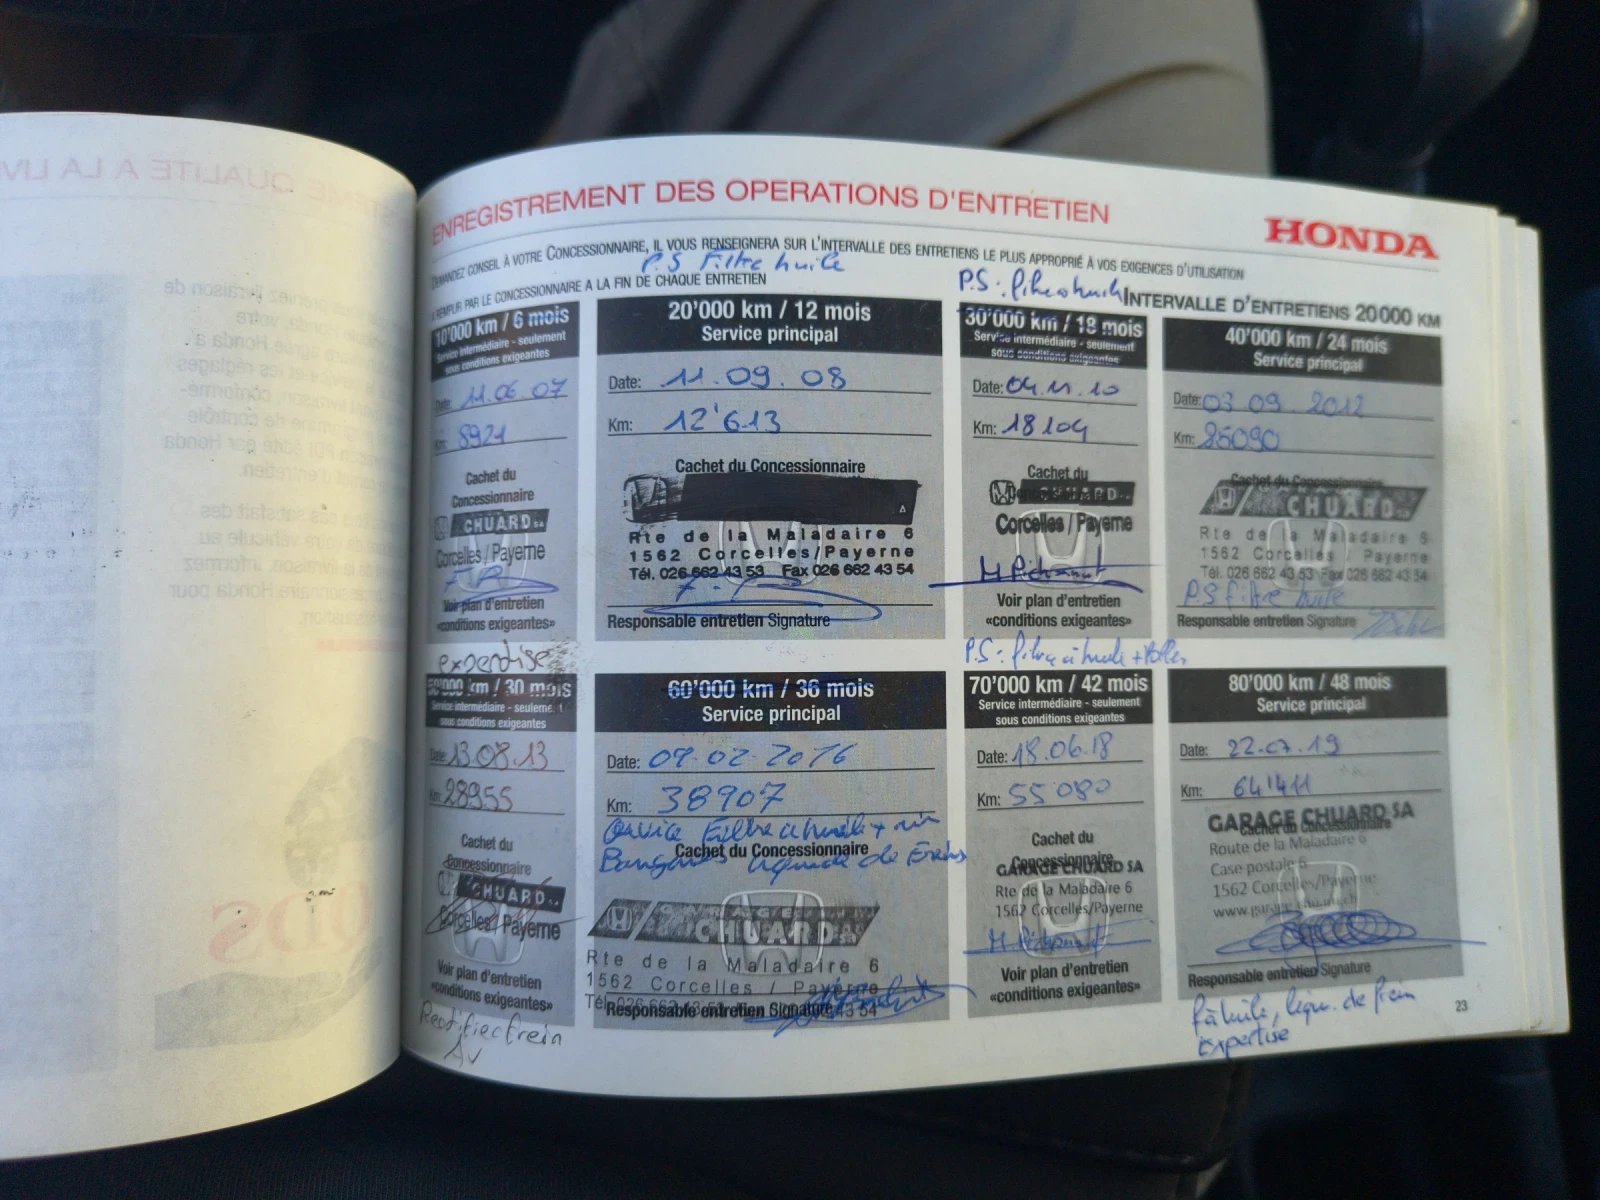 ENREGISTREMENT DES OPERATIONS D'ENTRETIEN
HONDA
DEMANDEZ CONSEIL À VOTRE CONCESSIONNAIRE, IL VOUS RENSEIGNERA SUR L'INTERVALLE DES ENTRETIENS LE PLUS APPROPRIÉ À VOS EXIGENCES D'UTILISATION
P.S Filtre huile
A REMPLIR PAR LE CONCESSIONNAIRE A LA FIN DE CHAQUE ENTRETIEN
P.S: filtre à huile
INTERVALLE D'ENTRETIENS 20000 KM
10'000 km / 6 mois
Service intermédiaire - seulement
sous conditions exigeantes
Date: 11.06.07
Km: 8921
Cachet du
Concessionnaire
CHUARD SA
Corcelles / Payerne
Voir plan d'entretien
«conditions exigeantes»
20'000 km / 12 mois
Service principal
Date: 11.09.08
Km: 12'613
Cachet du Concessionnaire
Rte de la Maladaire 6
1562 Corcelles/Payerne
Tél. 026 662 43 53 Fax 026 662 43 54
Responsable entretien Signature
30'000 km / 18 mois
Service intermédiaire - seulement
sous conditions exigeantes
Date: 04.11.10
Km: 18104
Cachet du
Concessionnaire
CHUARD
Corcelles / Payerne
Voir plan d'entretien
«conditions exigeantes»
40'000 km / 24 mois
Service principal
Date: 03 09. 2012
Km: 25090
Cachet du Concessionnaire
CHUARD
Rte de la Maladaire 6
1562 Corcelles / Payerne
Tél. 026 662 43 53 Fax 026 662 43 54
P.S filtre huile
Responsable entretien Signature
expertise
50'000 km / 30 mois
Service intermédiaire - seulement
sous conditions exigeantes
Date: 13.08.13
Km: 28955
Cachet du
Concessionnaire
CHUARD
Corcelles / Payerne
Voir plan d'entretien
«conditions exigeantes»
Rectifier frein
Av
60'000 km / 36 mois
Service principal
Date: 09.02.2016
Km: 38907
Filtre à huile +
Cachet du Concessionnaire
liquide de freins
CHUARD
Rte de la Maladaire 6
1562 Corcelles / Payerne
Responsable entretien Signature
P.S: filtre à huile +
70'000 km / 42 mois
Service intermédiaire - seulement
sous conditions exigeantes
Date: 18.06.18
Km: 55080
Cachet du
Concessionnaire
GARAGE CHUARD SA
Rte de la Maladaire 6
1562 Corcelles/Payerne
Voir plan d'entretien
«conditions exigeantes»
80'000 km / 48 mois
Service principal
Date: 22.07.19
Km: 64'411
GARAGE CHUARD SA
Cachet du Concessionnaire
Route de la Maladaire 6
Case postale 6
1562 Corcelles/Payerne
www.garage-chuard.ch
Responsable entretien Signature
f à huile, liqu. de frein
Expertise
23